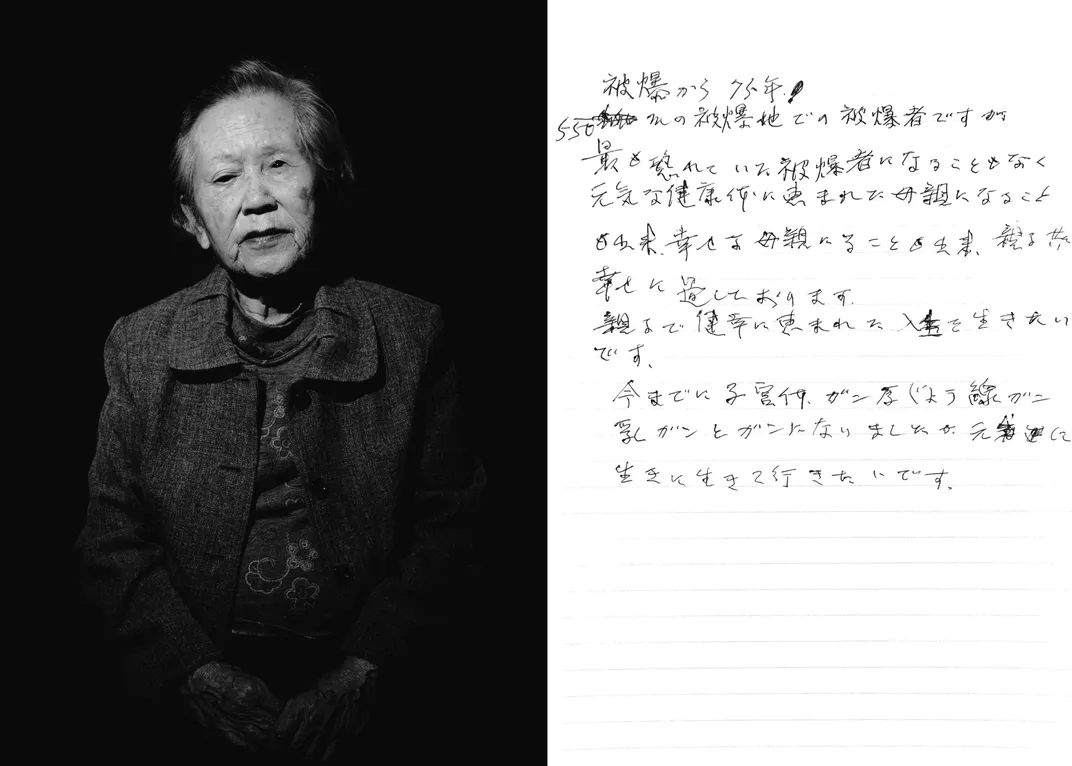 被爆から 75年!
550 mの被爆地での被爆者ですが
最も恐れていた被爆者になることもなく
元気な健康体に恵まれた母親になること
も出来、幸せな母親になることも出来、親子共
幸せに過しております。
親子で健幸に恵まれた人生を生きたい
です。
今までに子宮体ガン 甲じょう線ガン
乳ガンとガンになりましたが 元気に
生きに生きて行きたいです。